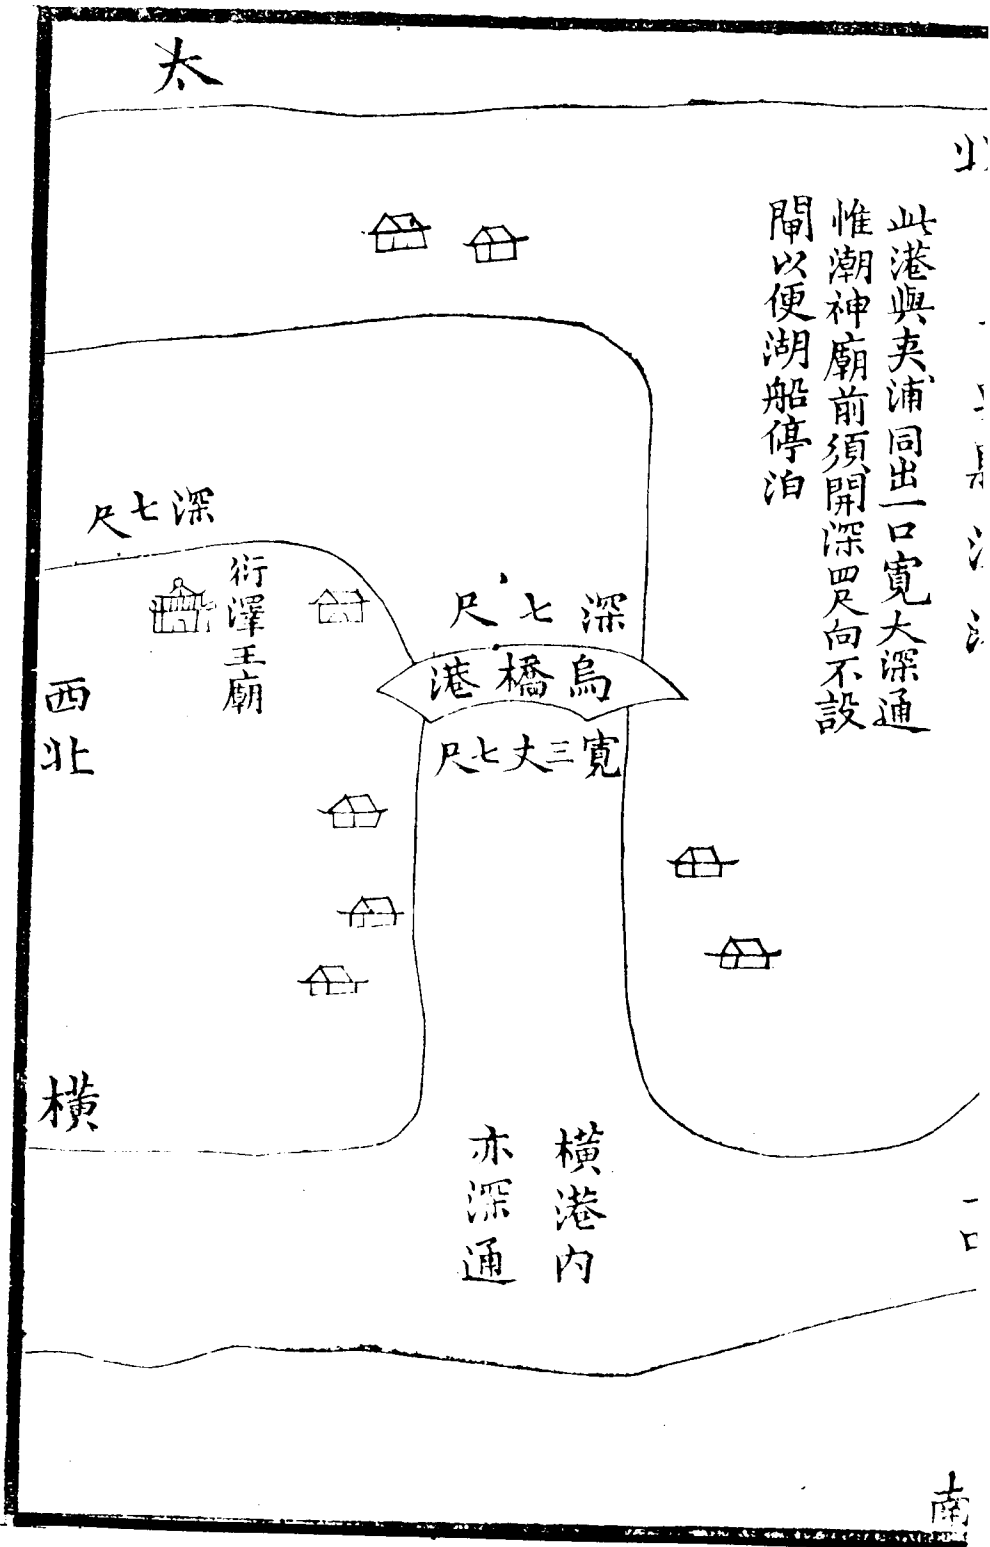 北
此港與夾浦同出一口寬大深通
惟潮神廟前須開深四尺向不設
閘以便湖船停泊
太
深七尺
衍澤王廟
深七尺
烏橋港
寬三丈七尺
西北
橫
橫港內
亦深通
南